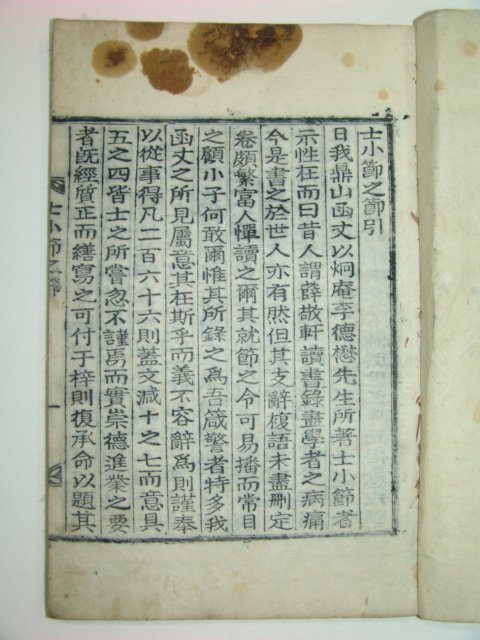 士小節之節引
日我鼎山函丈以炯庵李德懋先生所著士小節者
示性在而曰昔人謂薛敬軒讀書錄盡學者之病痛
今是書之於世人亦有然但其支辭複語未盡刪定
卷頗繁富人憚讀之爾其就節之令可易播而常目
之顧小子何敢爾惟其所錄之爲吾箴警者特多我
函丈之所見屬意其在斯乎而義不容辭焉則謹奉
以從事得凡二百六十六則蓋文減十之七而意具
五之四皆士之所嘗忽不謹焉而實崇德進業之要
者旣經質正而繕寫之可付于梓則復承命以題其
士小節之節
一